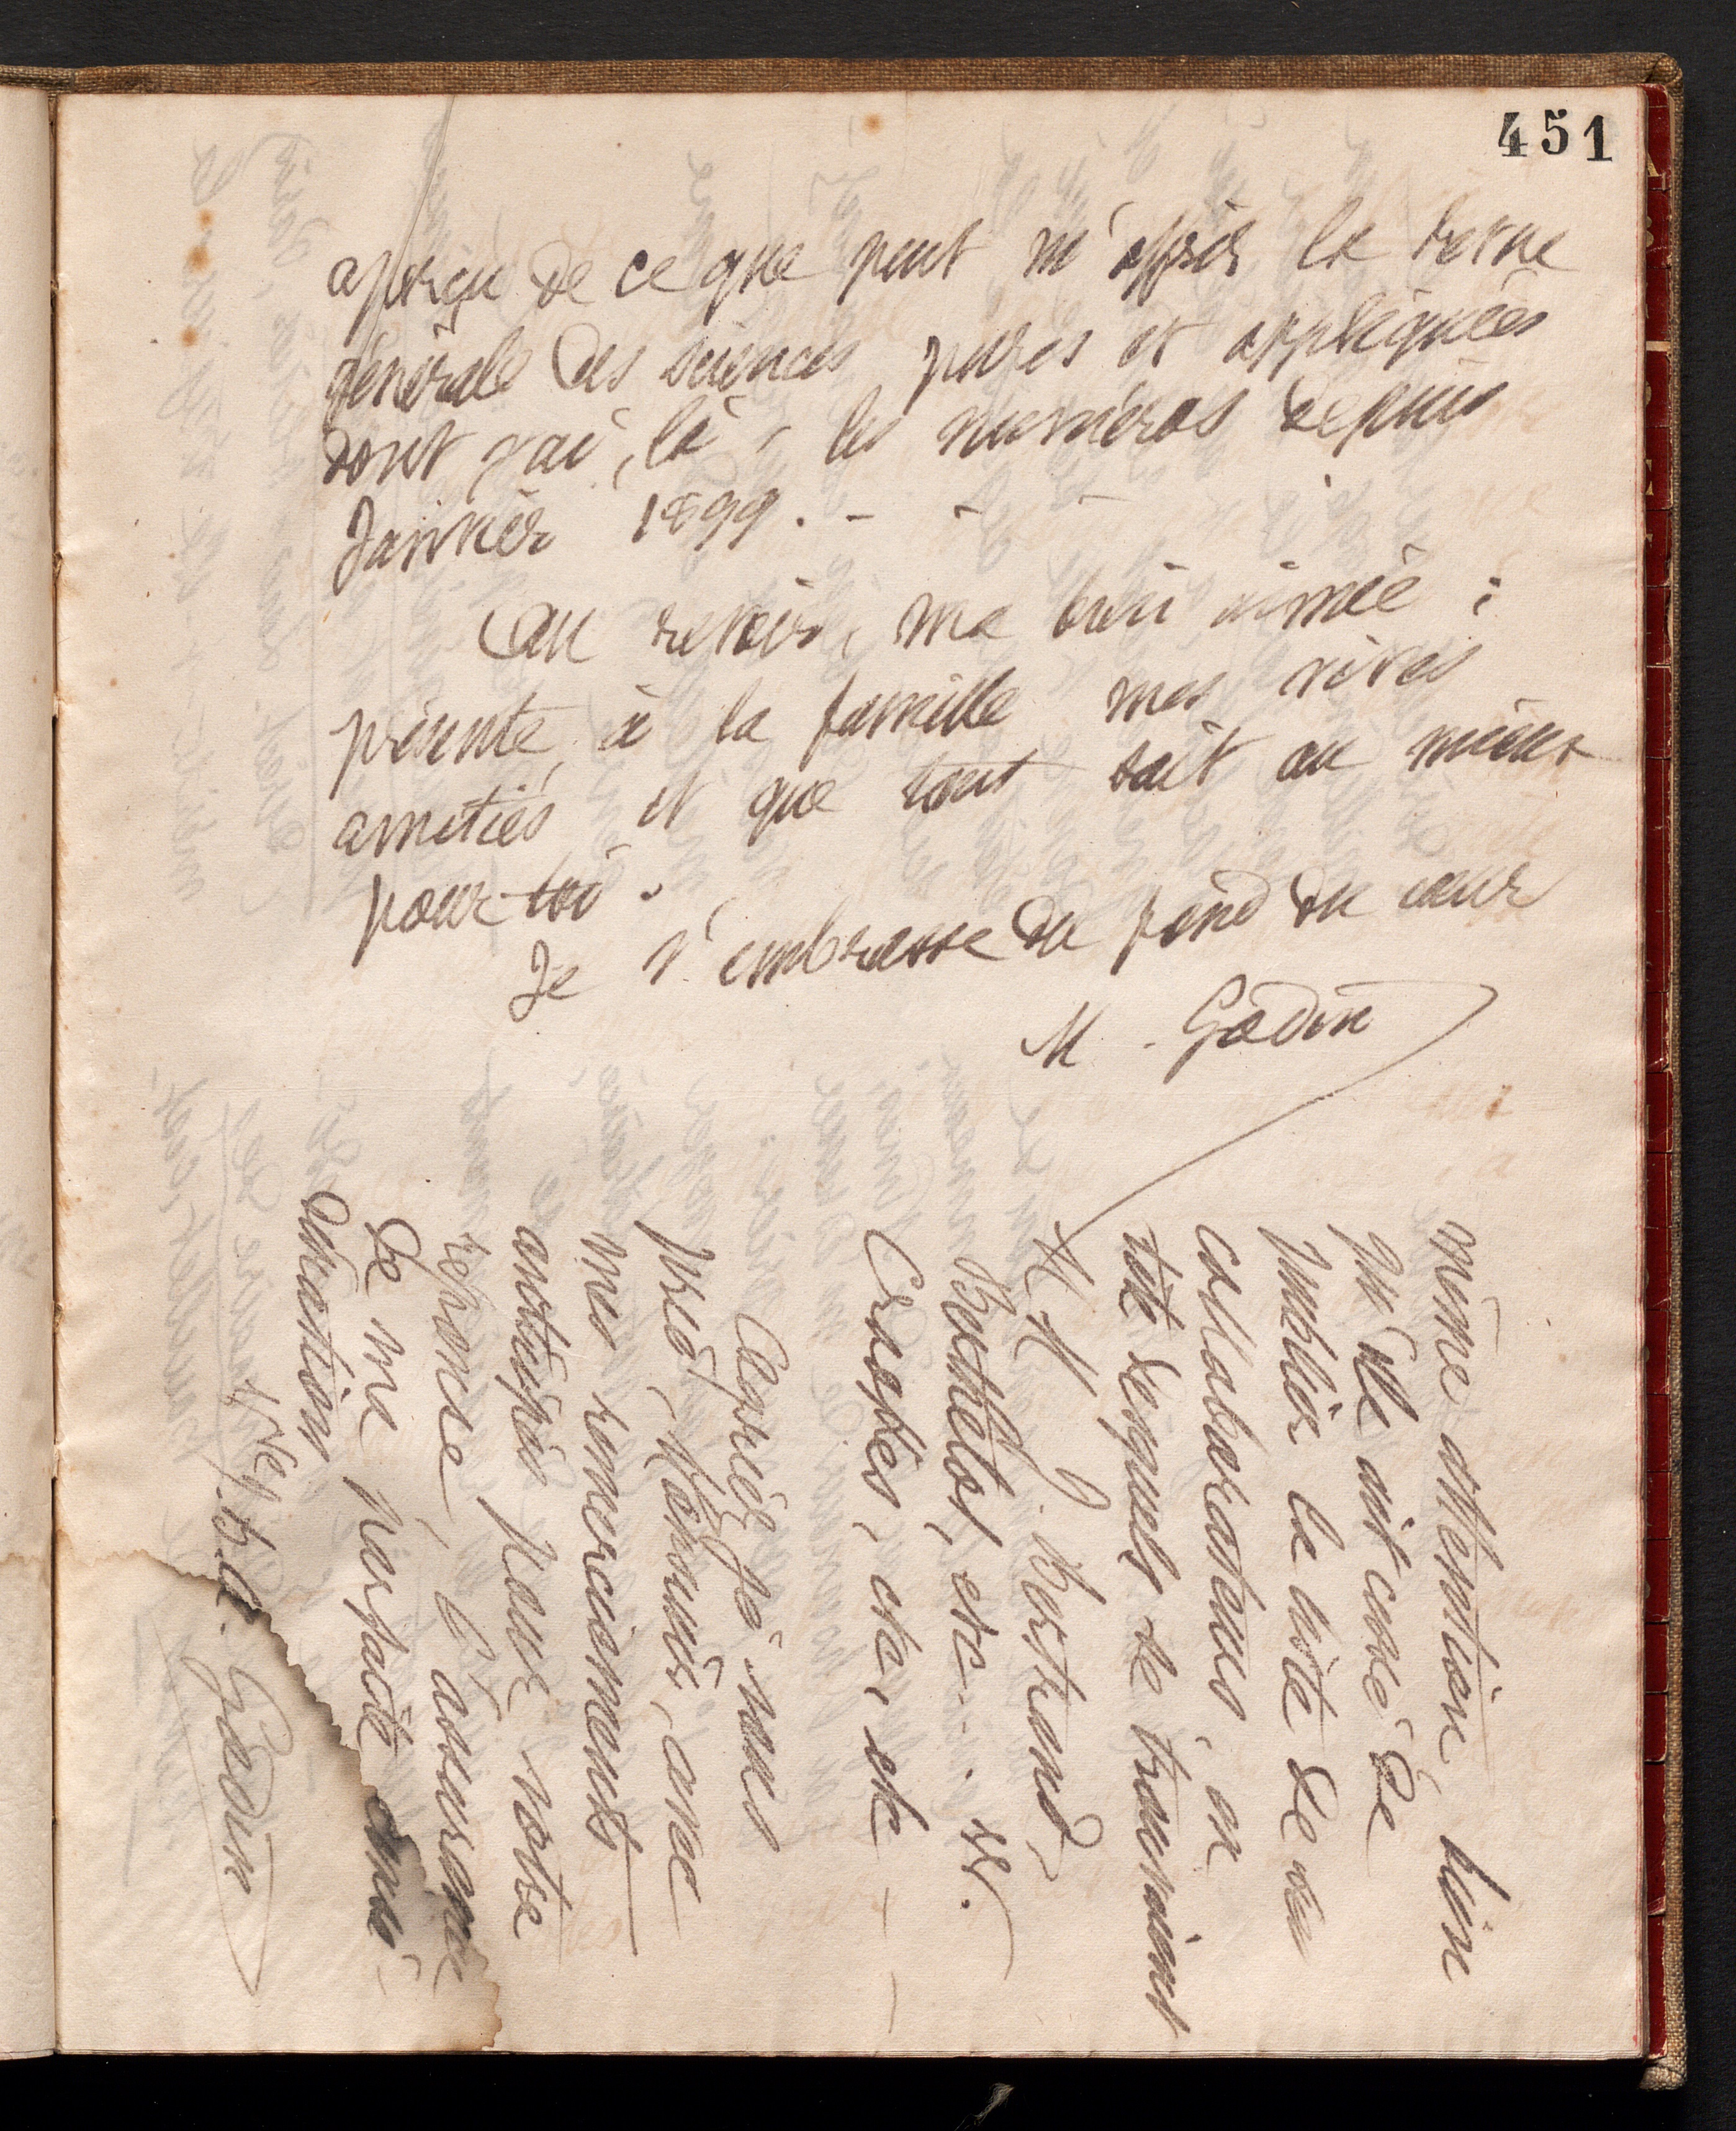 451
aperçu de ce que peut m'offrir la Revue
générale des sciences pures et appliquées
dont j'ai, là, les numéros depuis
Janvier 1899. - -
Au revoir, ma bien aimée ;
présente à la famille mes vives
amitiés et que tout soit au mieux
pour toi.
Je t'embrasse du fond du cœur
M. Godin
même attention, bien
qu'elle ait cessé de
publier la liste de ses
collaborateurs, en
tête desquels se trouvaient
M. M. J. Bertrand,
Berthelot, etc...
Crookes, etc, etc
Agréez je vous
prie, Monsieur, avec
mes remerciements
anticipés pour votre
réponse, l'assurance
de ma parfaite consi-
dération
Vve. B.A. Godin